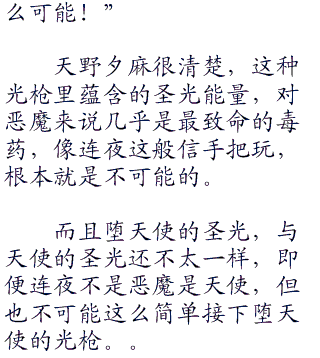 么可能！”
天野夕麻很清楚，这种
光枪里蕴含的圣光能量，对
恶魔来说几乎是最致命的毒
药，像连夜这般信手把玩，
根本就是不可能的。
而且堕天使的圣光，与
天使的圣光还不太一样，即
便连夜不是恶魔是天使，但
也不可能这么简单接下堕天
使的光枪。。